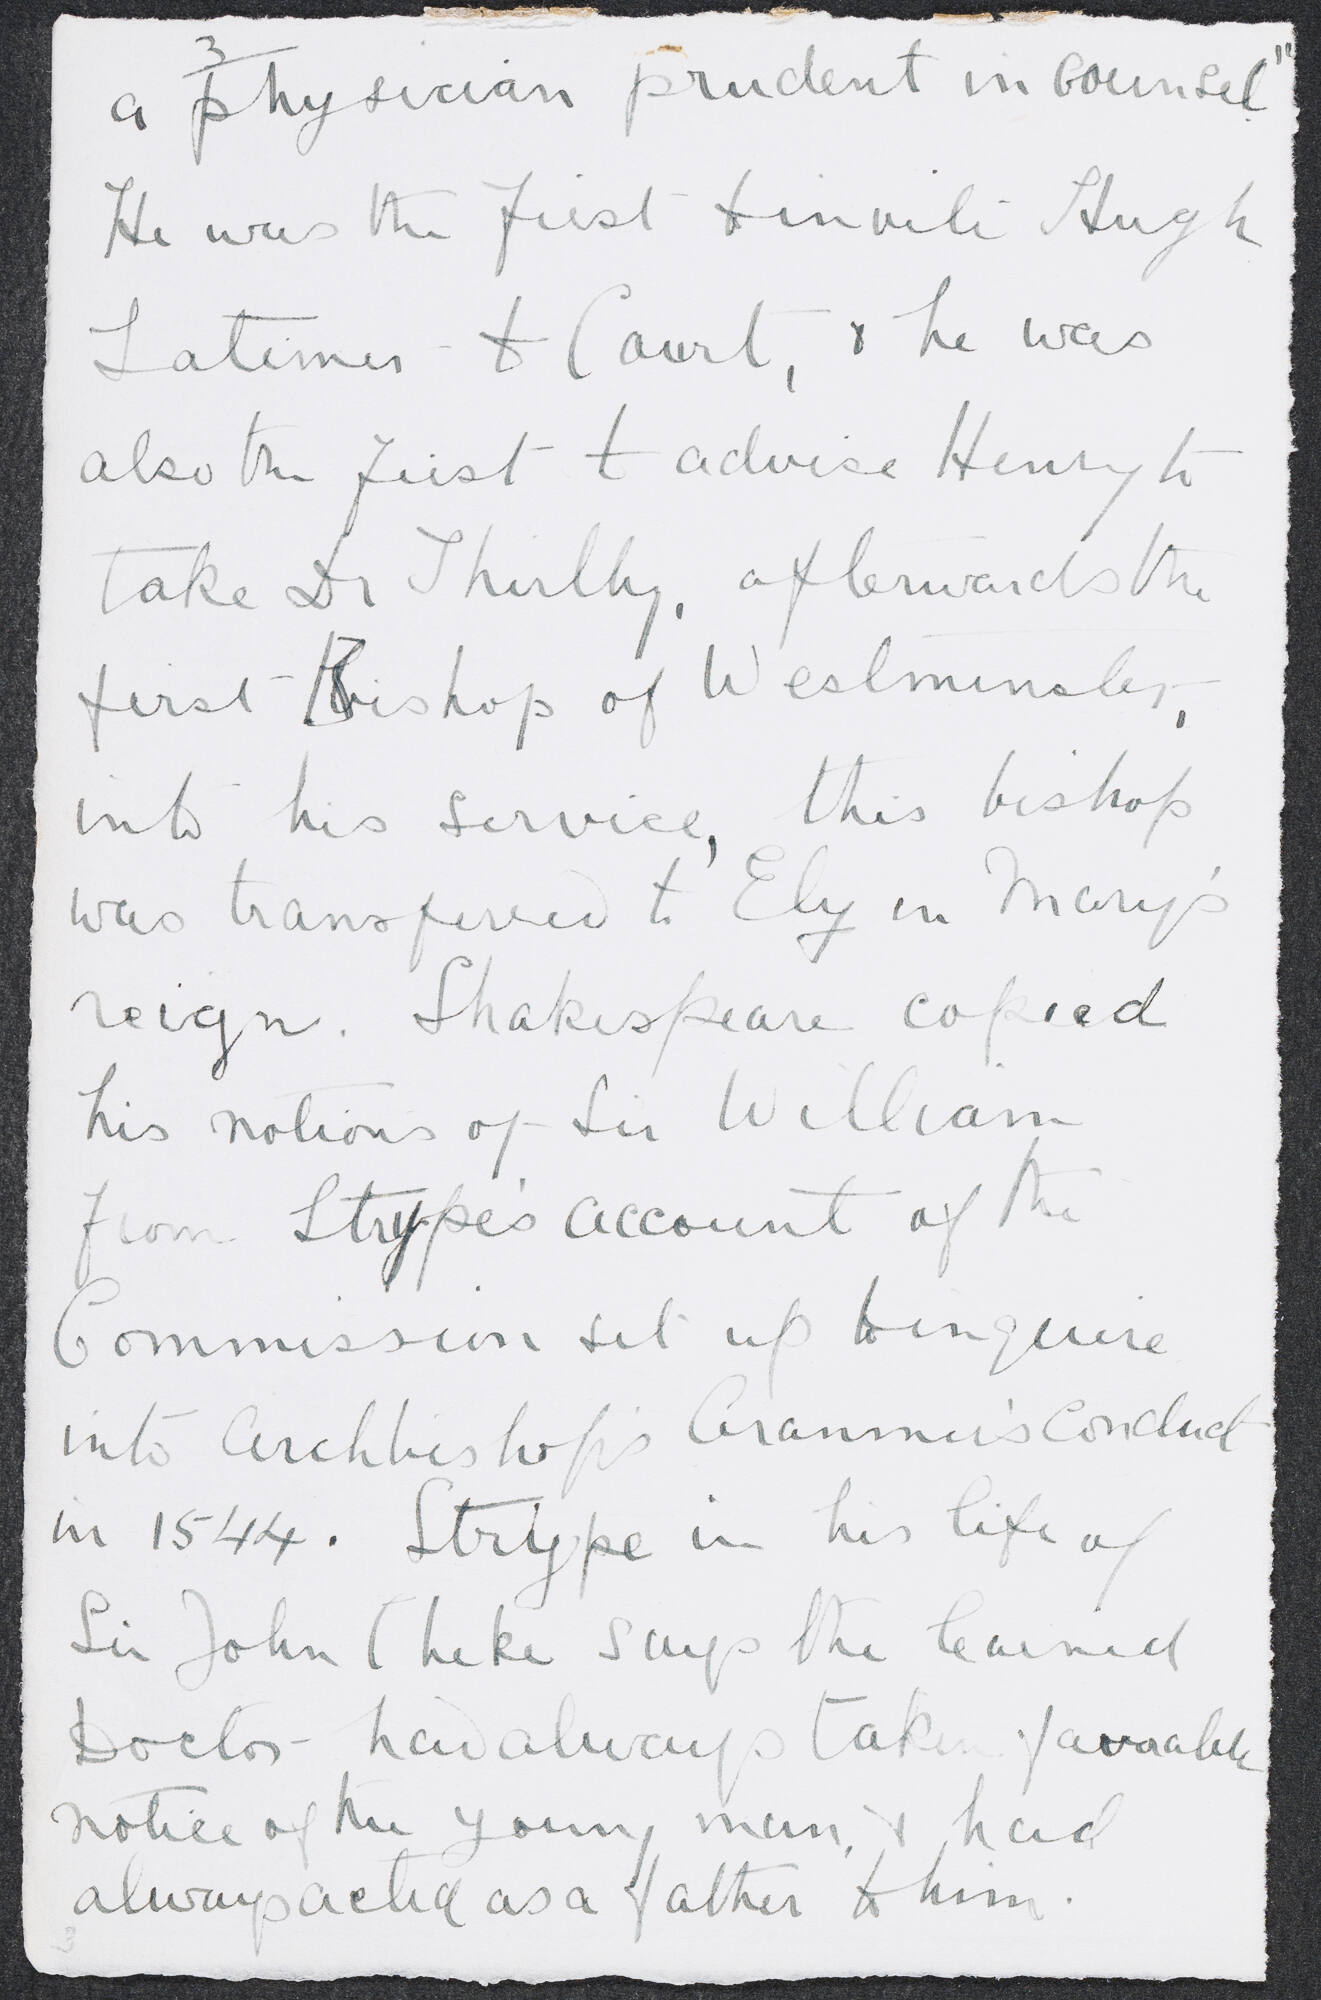 3
a physician prudent in counsel"
He was the first to invite Hugh
Latimer to Court, & he was
also the first to advise Henry to
take Dr Thirlby, afterwards the
first Bishop of Westminster,
into his service, this bishop
was transferred to Ely in Mary's
reign. Shakespeare copied
his notions of Sir William
from Strype's account of the
Commission set up to inquire
into Archbishop's Cranmer's conduct
in 1544. Strype in his life of
Sir John Cheke says the learned
Doctor had always taken favorable
notice of the young man, & had
always acted as a father to him.
3